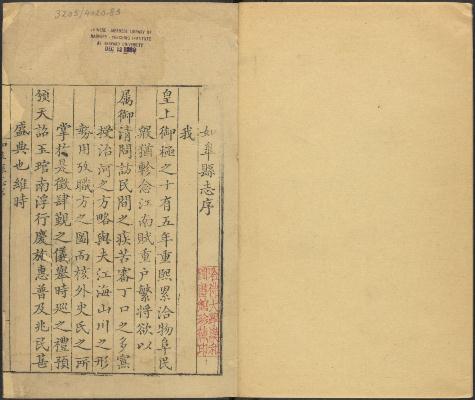 3205/4020.83
CHINESE-JAPANESE LIBRARY OF
HARVARD-YENCHING INSTITUTE
AT HARVARD UNIVERSITY
DEC 12
如皋縣志序
我
皇上御極之十有五年重熙累洽物阜民
猶軫念江南賦重户繁將欲以
属御清問訪民間之疾苦審丁口之多寡
授治河之方略與夫江海山川之形
勢用攷職方之圖而核外史氏之所
掌於是徵肆覲之儀舉時廵之禮預
頒天詔玉琯南浮行慶施惠普及兆民甚
盛典也維時